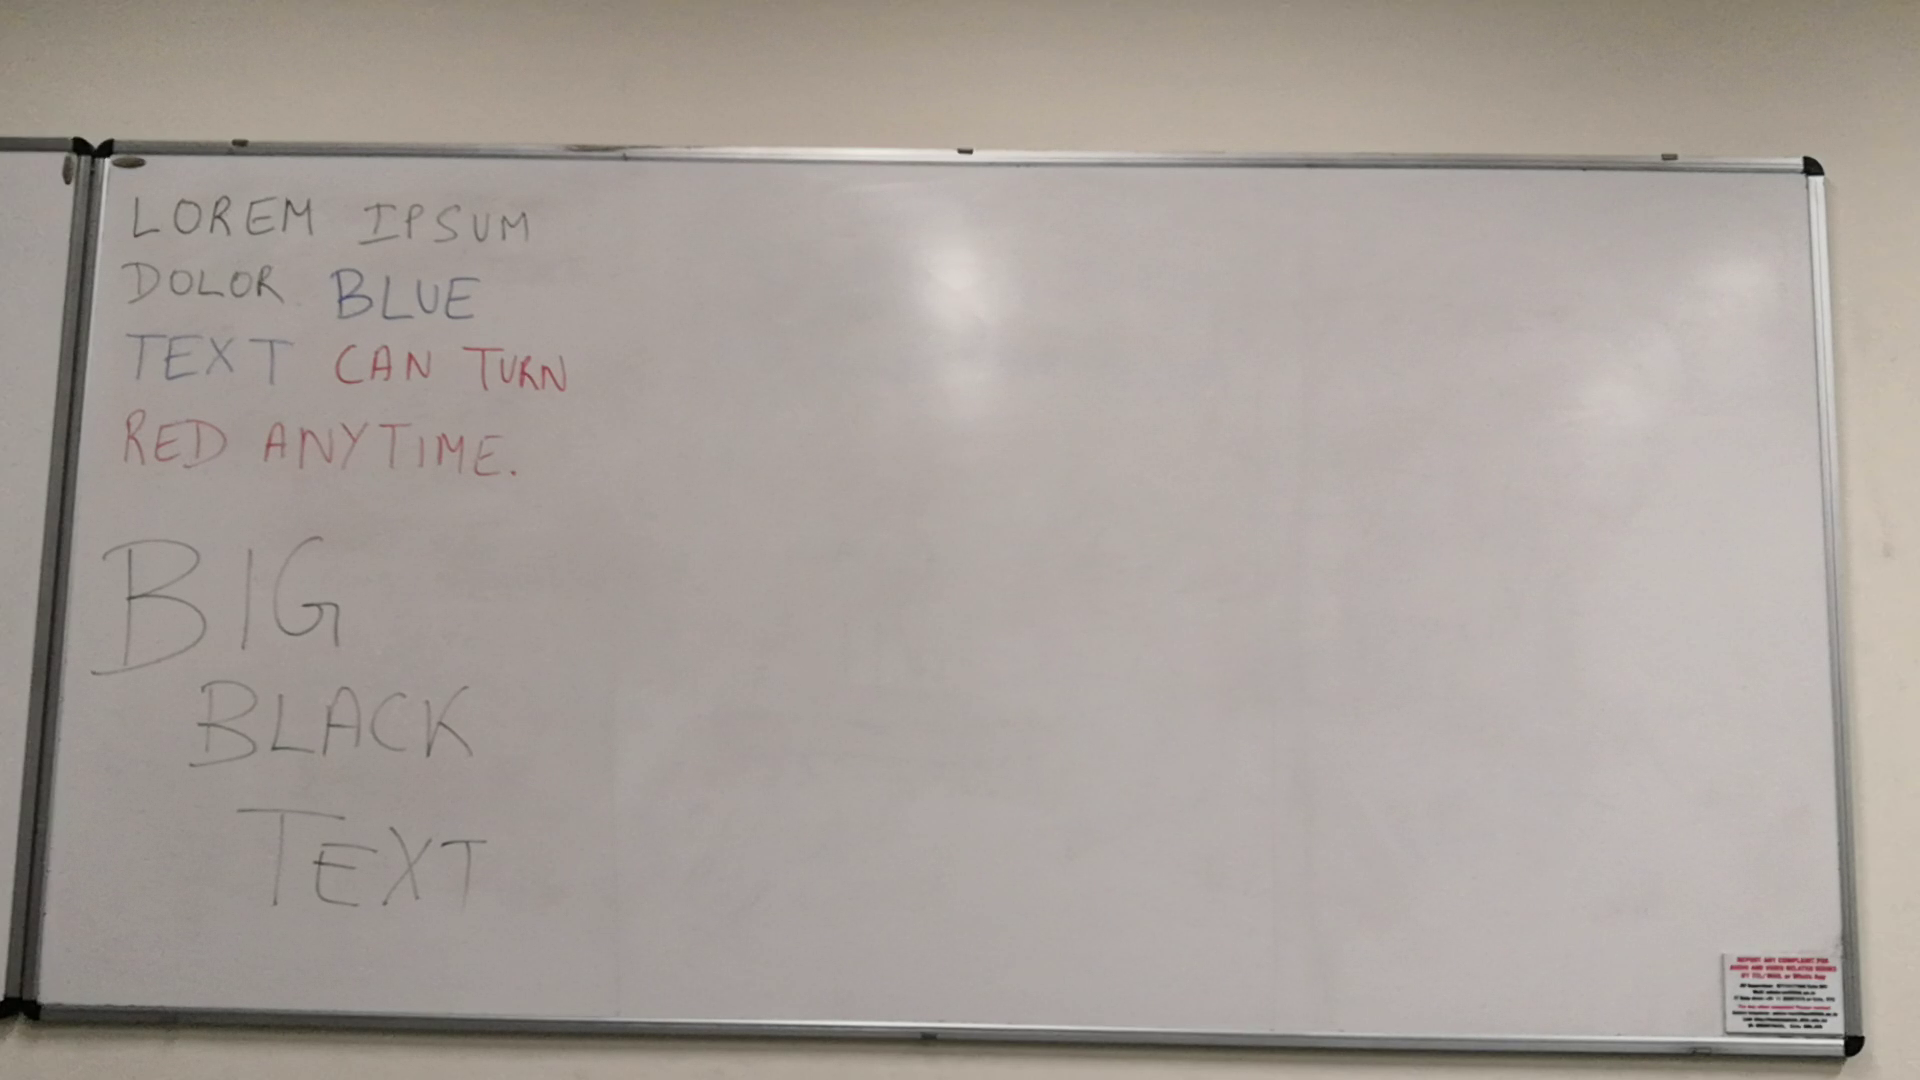 LOREM IPSUM
DOLOR BLUE
TEXT CAN TURN
RED ANYTIME.
BIG
BLACK
TEXT
REPORT ANY COMPLAINT FOR
AUDIO AND VIDEO RELATED ISSUES
BY TEL/MAIL or Whats App